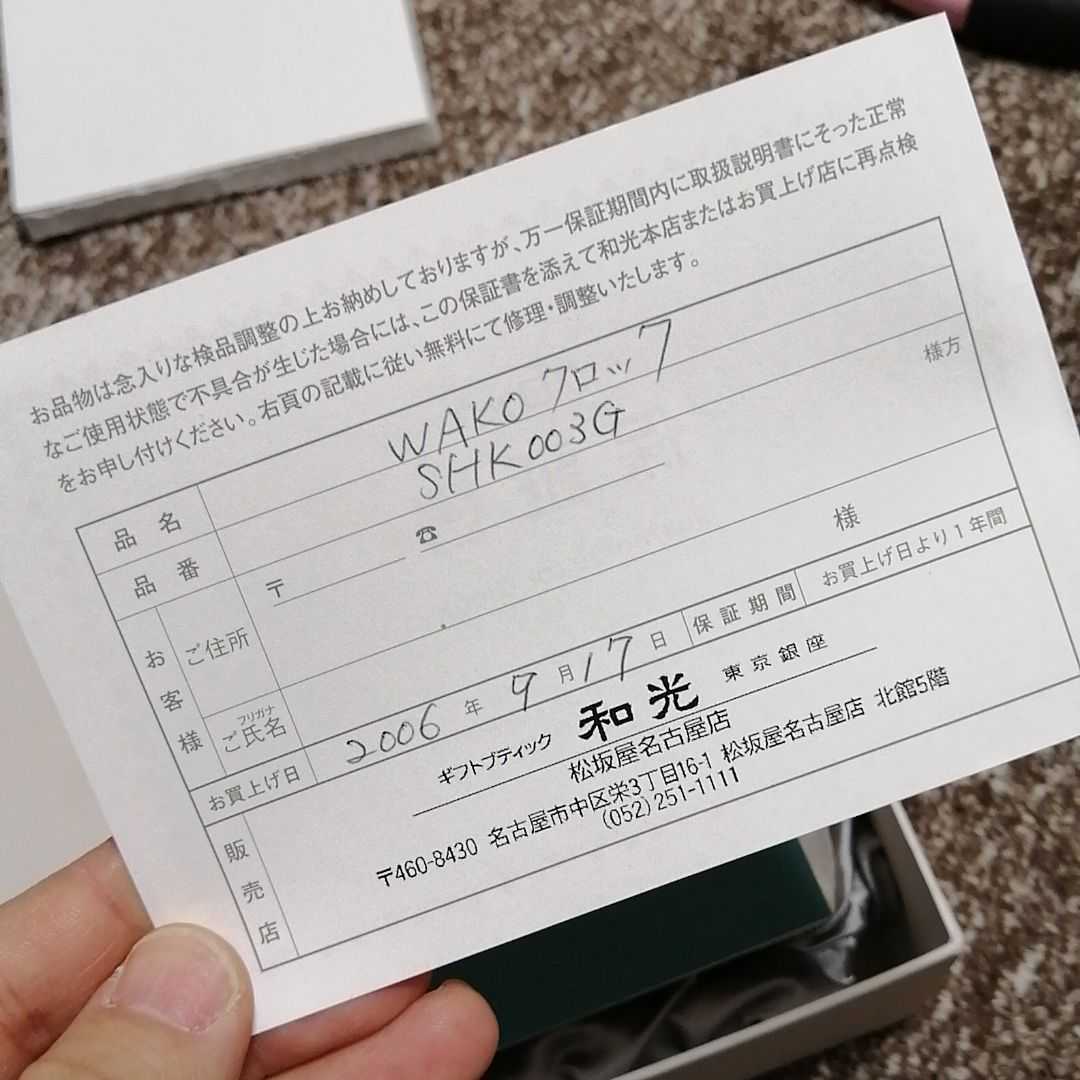 お品物は念入りな検品調整の上お納めしておりますが、万一保証期間内に取扱説明書にそった正常
なご使用状態で不具合が生じた場合には、この保証書を添えて和光本店またはお買上げ店に再点検
をお申し付けください。右頁の記載に従い無料にて修理・調整いたします。
品名 WAKO クロック
品番 SHK003G
お客様 ご住所 〒 ☎ 様方
フリガナ
ご氏名 様
お買上げ日 2006年 9月17日 保証期間 お買上げ日より1年間
販売店 ギフトブティック 和光 東京銀座
松坂屋名古屋店
〒460-8430 名古屋市中区栄3丁目16-1 松坂屋名古屋店 北館5階
(052)251-1111